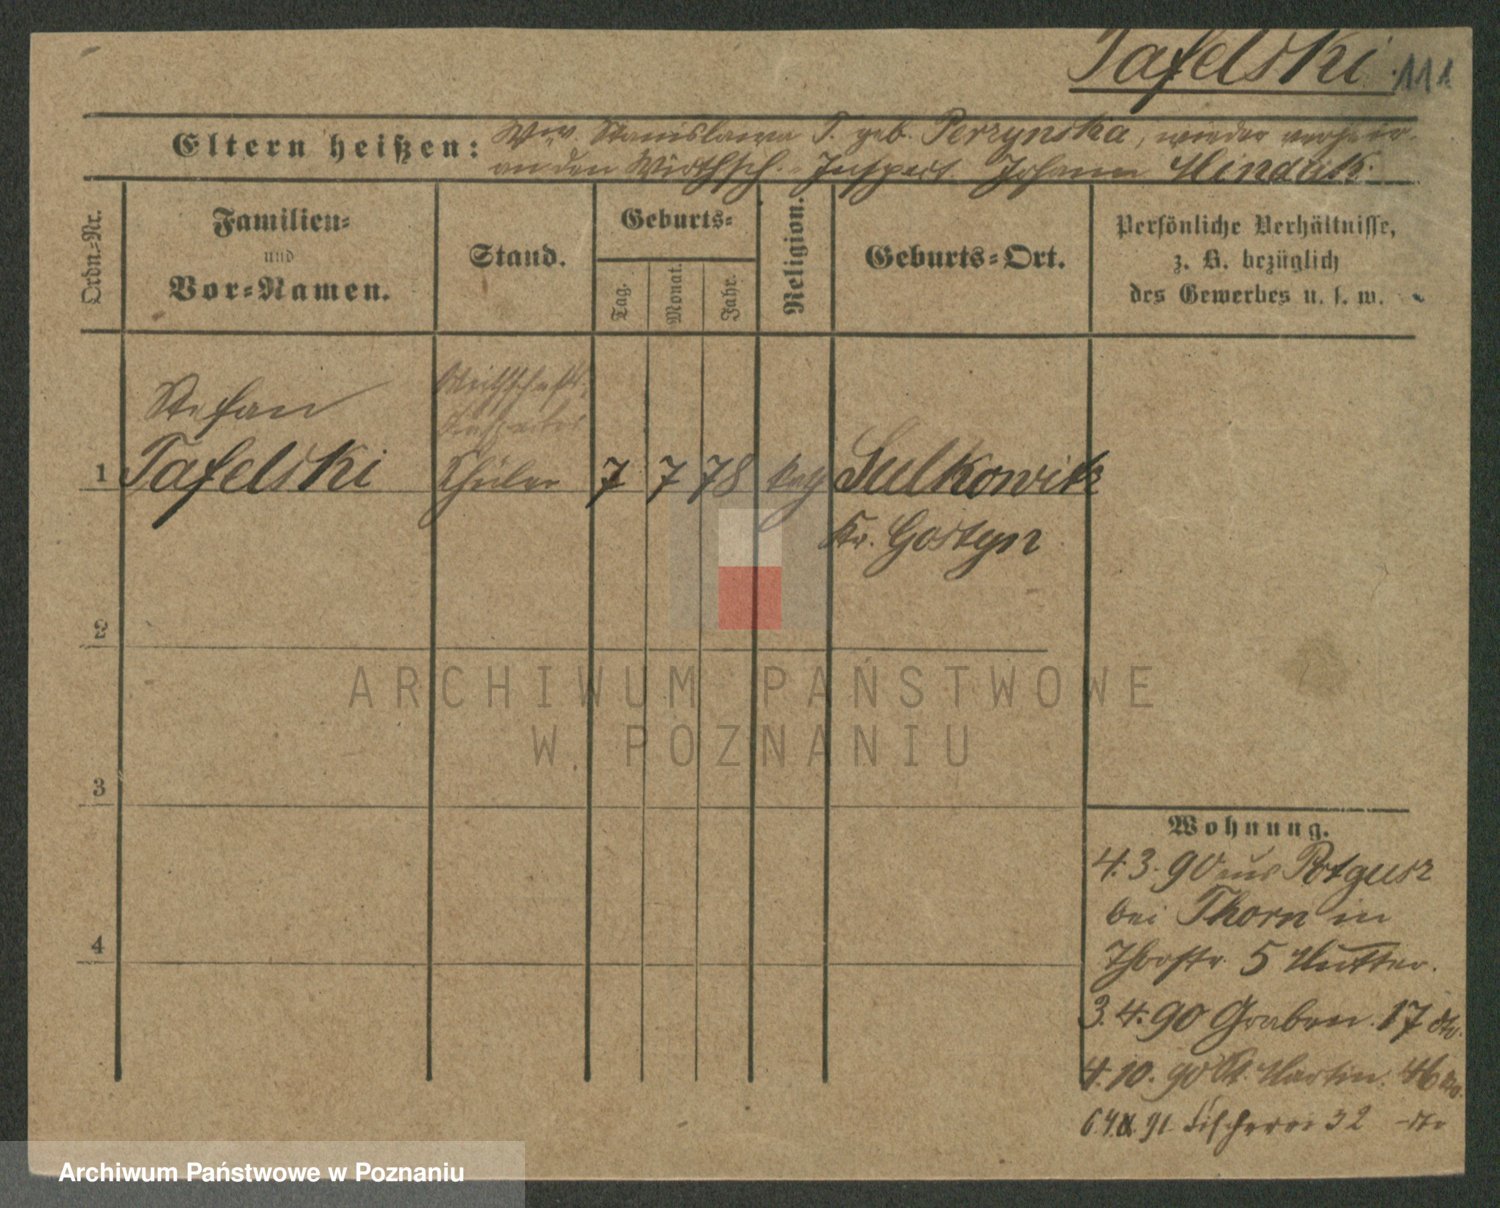 Tafelski
111
Eltern heißen: Wwe. Stanislawa T. geb. Perzynska, wieder verheir.
an den Wirthsch. Inspect. Johann
Ordn.-Nr.
Familien-
und
Vor-Namen.
Stand.
Geburts-
Tag.
Monat.
Jahr.
Religion.
Geburts-Ort.
Persönliche Verhältnisse,
z. B. bezüglich
des Gewerbes u. s. w.
Stefan
Wirthschafts
Inspector
1 Tafelski Schüler 7 7 78 kag Sulkowitz
Kr. Gostyn
2
3
4
ARCHIWUM PAŃSTWOWE
W POZNANIU
Wohnung.
4.3.90 aus
bei Thorn in
Thorstr. 5 Mutter.
3.4.90 Graben 17 dto.
4.10.90 St. Martin 46 dto.
91 Fischerei 32 dto
Archiwum Państwowe w Poznaniu